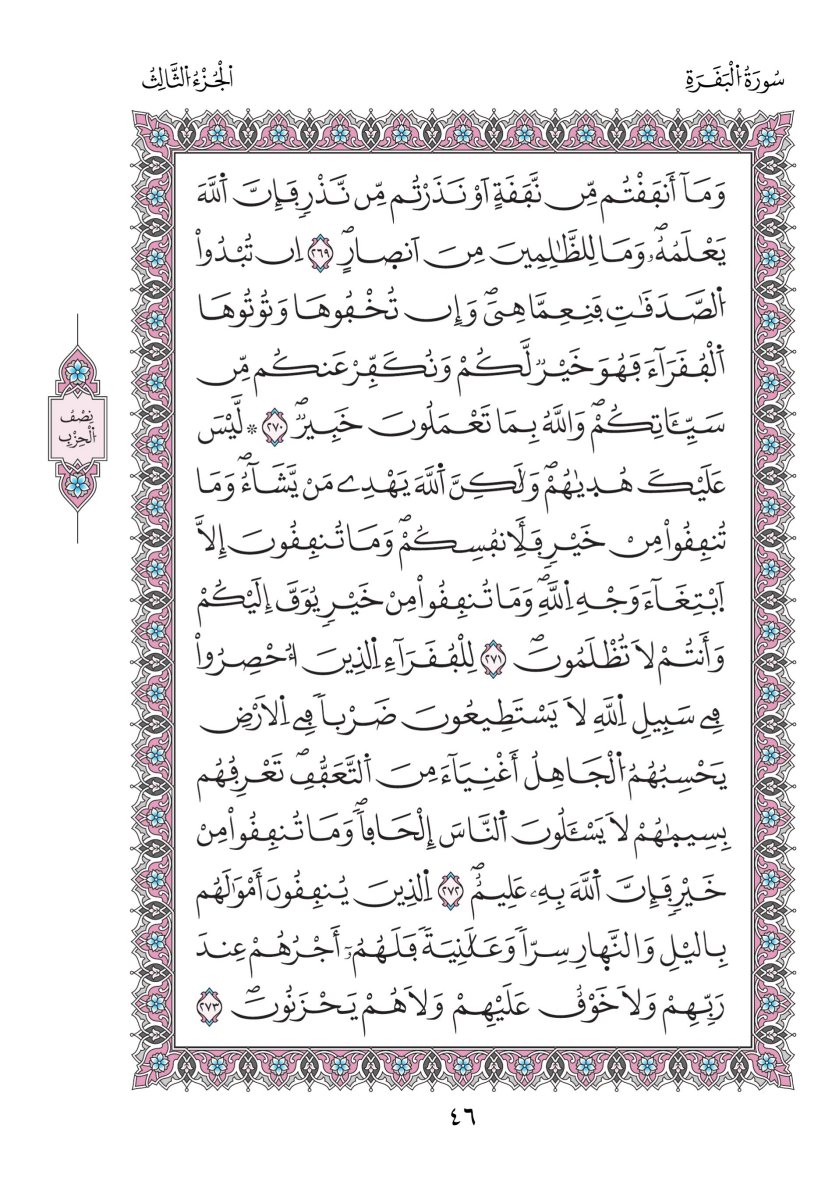 سُورَةُ اُ۬لْبَقَرَةِ
اَ۬لْجُزْءُ اُ۬لثَّالِثُ
وَمَآ أَنفَقْتُم مِّن نَّفَقَةٍ اَوْ نَذَرْتُم مِّن نَّذْرٖ فَإِنَّ اَ۬للَّهَ
يَعْلَمُهُۥۖ وَمَا لِلظَّٰلِمِينَ مِنَ اَنصارٍۖ ٢٦٩ اِن تُبْدُواْ
اُ۬لصَّدَقَٰتِ فَنِعِمَّا هِيَۖ وَإِن تُخْفُوهَا وَتُوتُوهَا
اَ۬لْفُقَرَآءَ فَهُوَ خَيْرٞ لَّكُمْ وَنُكَفِّرْ عَنكُم مِّن
سَيِّـَٔاتِكُمْۖ وَاللَّهُ بِمَا تَعْمَلُونَ خَبِيرٞۖ ٢٧٠ ۞ لَّيْسَ
عَلَيْكَ هُد۪يٰهُمْۖ وَلَٰكِنَّ اَ۬للَّهَ يَهْدِے مَنْ يَّشَآءُۖ وَمَا
تُنفِقُواْ مِنْ خَيْرٖ فَلِأَنفُسِكُمْۖ وَمَا تُنفِقُونَ إِلَّا
اَ۪بْتِغَآءَ وَجْهِ اِ۬للَّهِۖ وَمَا تُنفِقُواْ مِنْ خَيْرٖ يُوَفَّ إِلَيْكُمْ
وَأَنتُمْ لَا تُظْلَمُونَۖ ٢٧١ لِلْفُقَرَآءِ اِ۬لذِينَ أُحْصِرُواْ
فِے سَبِيلِ اِ۬للَّهِ لَا يَسْتَطِيعُونَ ضَرْباٗ فِے اِ۬لَارْضِ
يَحْسِبُهُمُ اُ۬لْجَاهِلُ أَغْنِيَآءَ مِنَ اَ۬لتَّعَفُّفِۖ تَعْرِفُهُم
بِسِيم۪يٰهُمْ لَا يَسْـَٔلُونَ اَ۬لنَّاسَ إِلْحَافاٗۖ وَمَا تُنفِقُواْ مِنْ
خَيْرٖ فَإِنَّ اَ۬للَّهَ بِهِۦ عَلِيمٌۖ ٢٧٢ اِ۬لذِينَ يُنفِقُونَ أَمْوَٰلَهُم
بِاليْلِ وَالنَّه۪ارِ سِرّاٗ وَعَلَٰنِيَةٗ فَلَهُمُۥٓ أَجْرُهُمْ عِندَ
رَبِّهِمْ وَلَا خَوْفٌ عَلَيْهِمْ وَلَا هُمْ يَحْزَنُونَۖ ٢٧٣
نِصْفُ
اُ۬لْحِزْبِ
٤٦